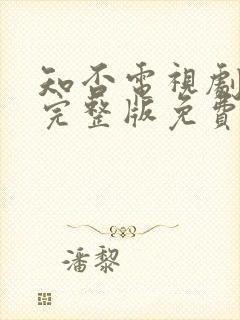 知否電視劇
完整版免費
潘黎